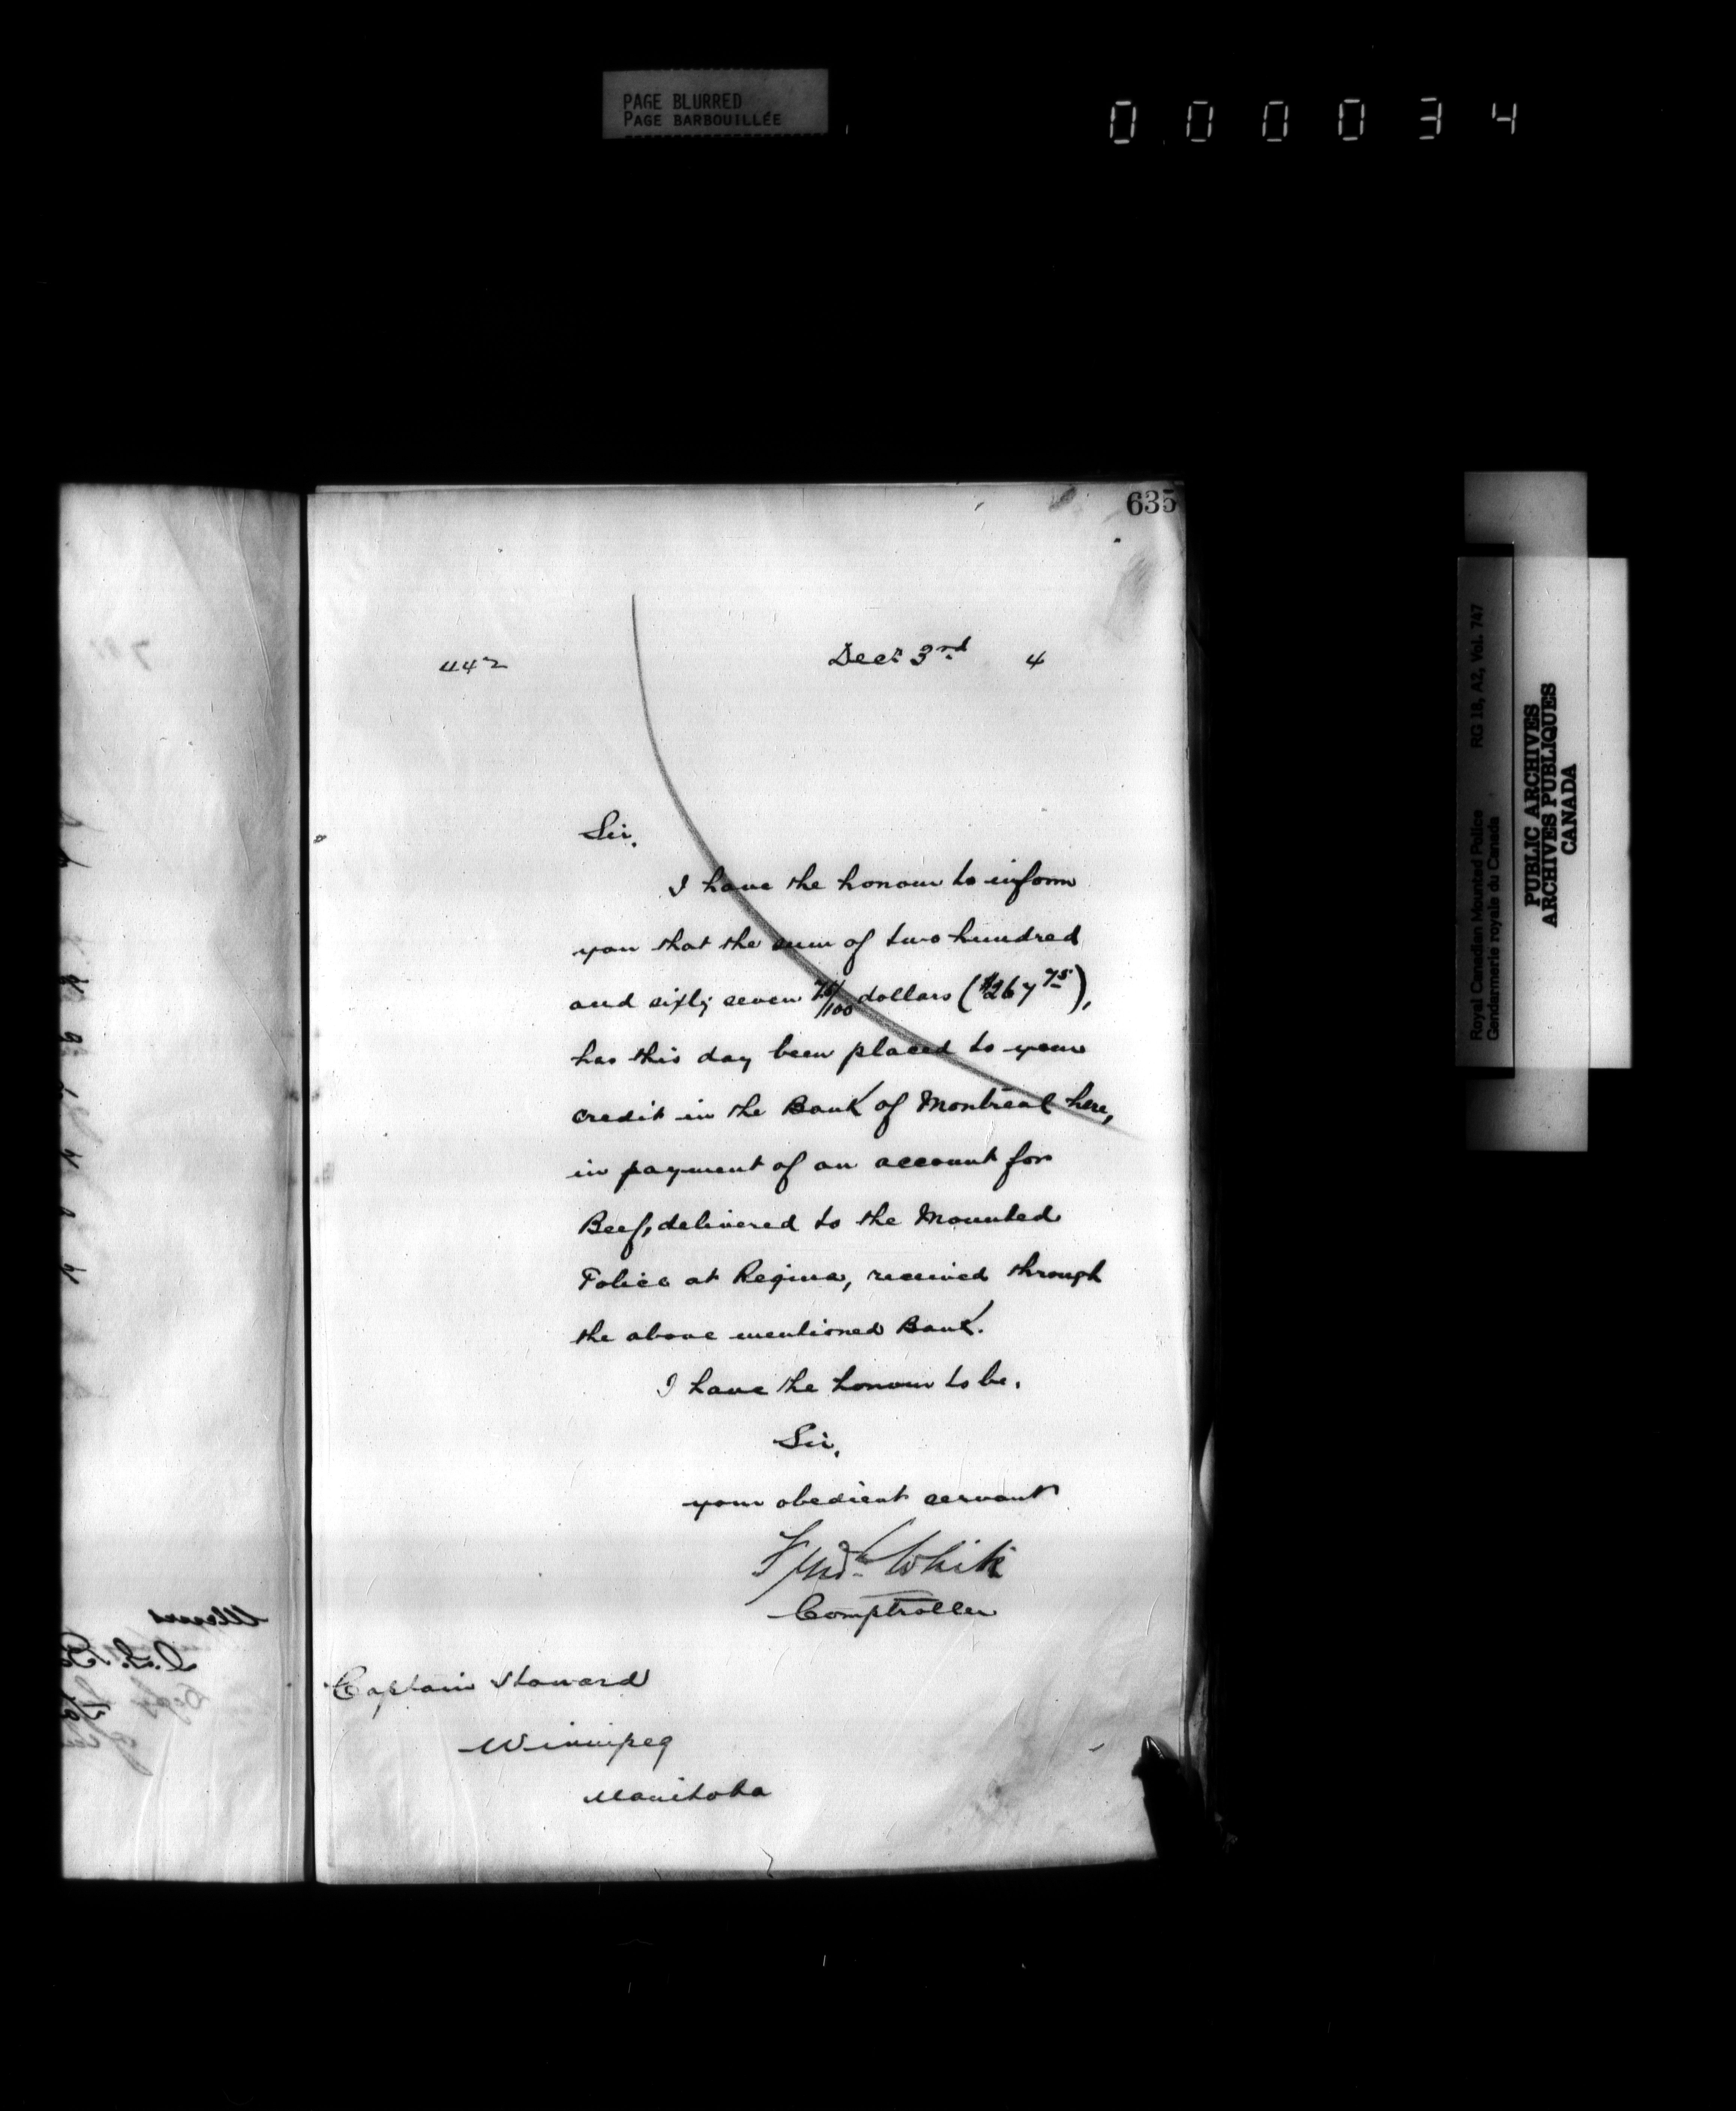 PAGE BLURRED
PAGE BARBOUILLÉE
0 0 0 0 3 4
635
442
Decr 3rd 4
Sir,
I have the honour to inform
you that the sum of two hundred
and sixty seven 75/100 dollars ($267 75),
has this day been placed to your
credit in the Bank of Montreal here,
in payment of an account for
Beef, delivered to the Mounted
Police at Regina, received through
the above mentioned Bank.
I have the honour to be,
Sir,
your obedient servant
Fred White
Comptroller
Captain Howard
Winnipeg
Manitoba
Royal Canadian Mounted Police RG 18, A2, Vol. 747
Gendarmerie royale du Canada
PUBLIC ARCHIVES
ARCHIVES PUBLIQUES
CANADA